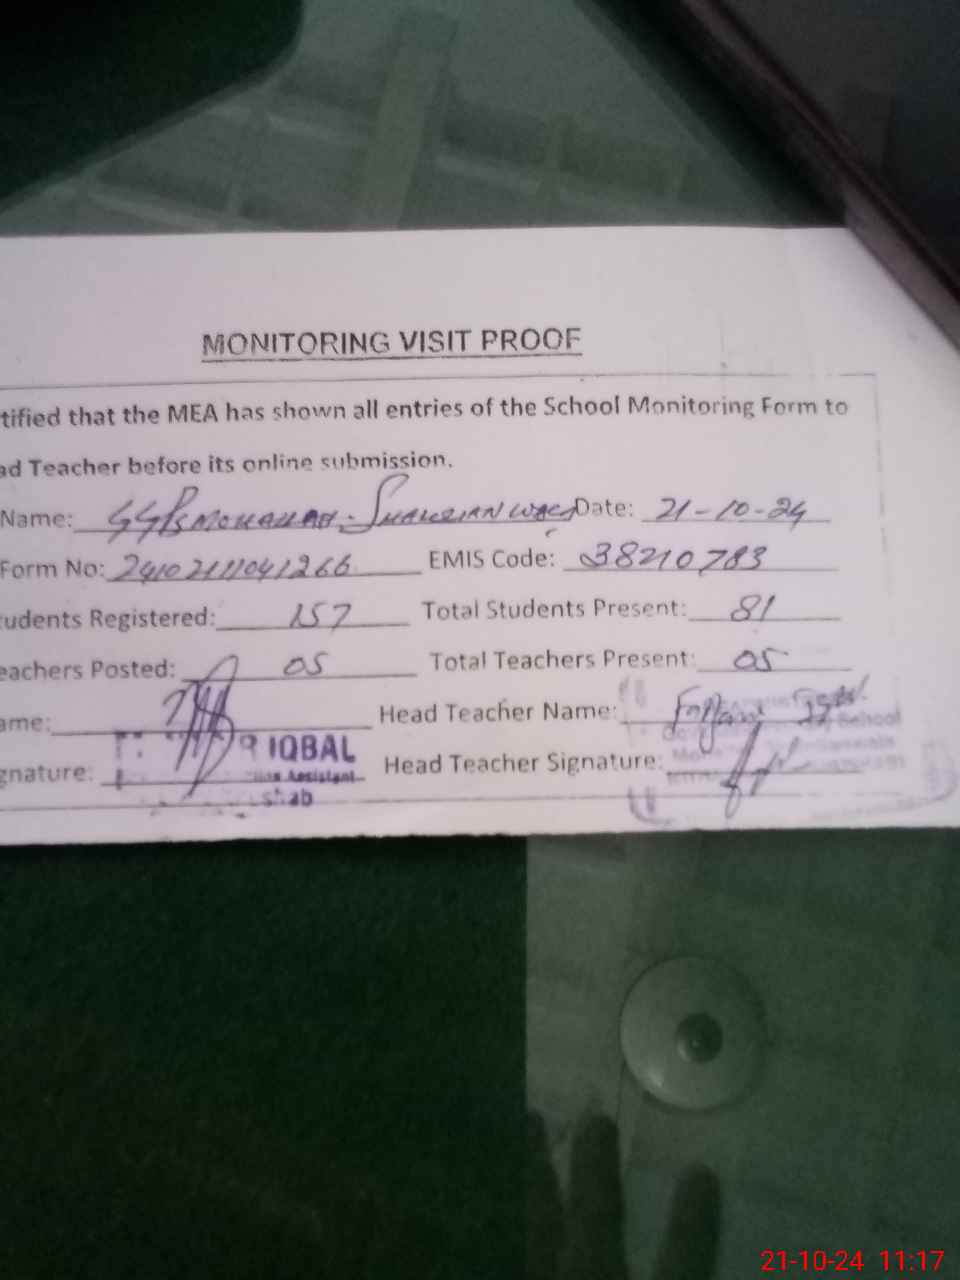 MONITORING VISIT PROOF
tified that the MEA has shown all entries of the School Monitoring Form to
ad Teacher before its online submission.
Name: GGPS MOHALLAH Date: 21-10-24
Form No: 2410211041266 EMIS Code: 38210783
tudents Registered: 157 Total Students Present: 81
eachers Posted: 05 Total Teachers Present: 05
ame: Head Teacher Name:
IQBAL School
gnature: Assistant Head Teacher Signature:
shab
21-10-24 11:17